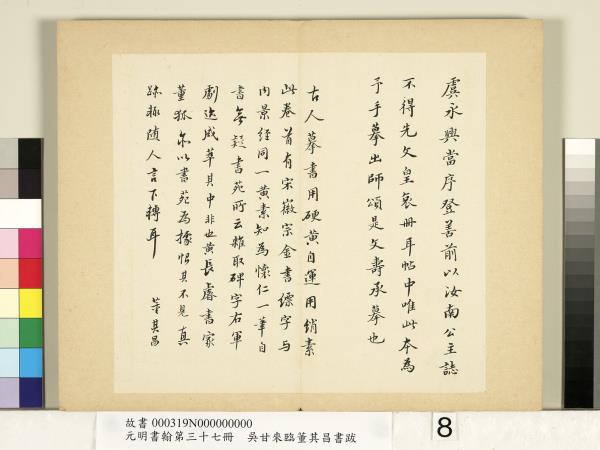 虞永興當序登善前以汝南公主誌
不得先文皇哀冊耳帖中唯此本為
予手摹出師頌是文壽承摹也
古人摹書用硬黃自運用綃素
此卷首有宋徽宗金書縹字与
內景經同一黃素知為懷仁一筆自
書無疑書苑所云雜取碑字右軍
劇迹咸萃其中非也黃長睿書家
董狐亦以書苑為據恨其不見真
跡輒隨人言下轉耳
董其昌
故書 000319N000000000
元明書翰第三十七冊 吳甘來臨董其昌書跋
8